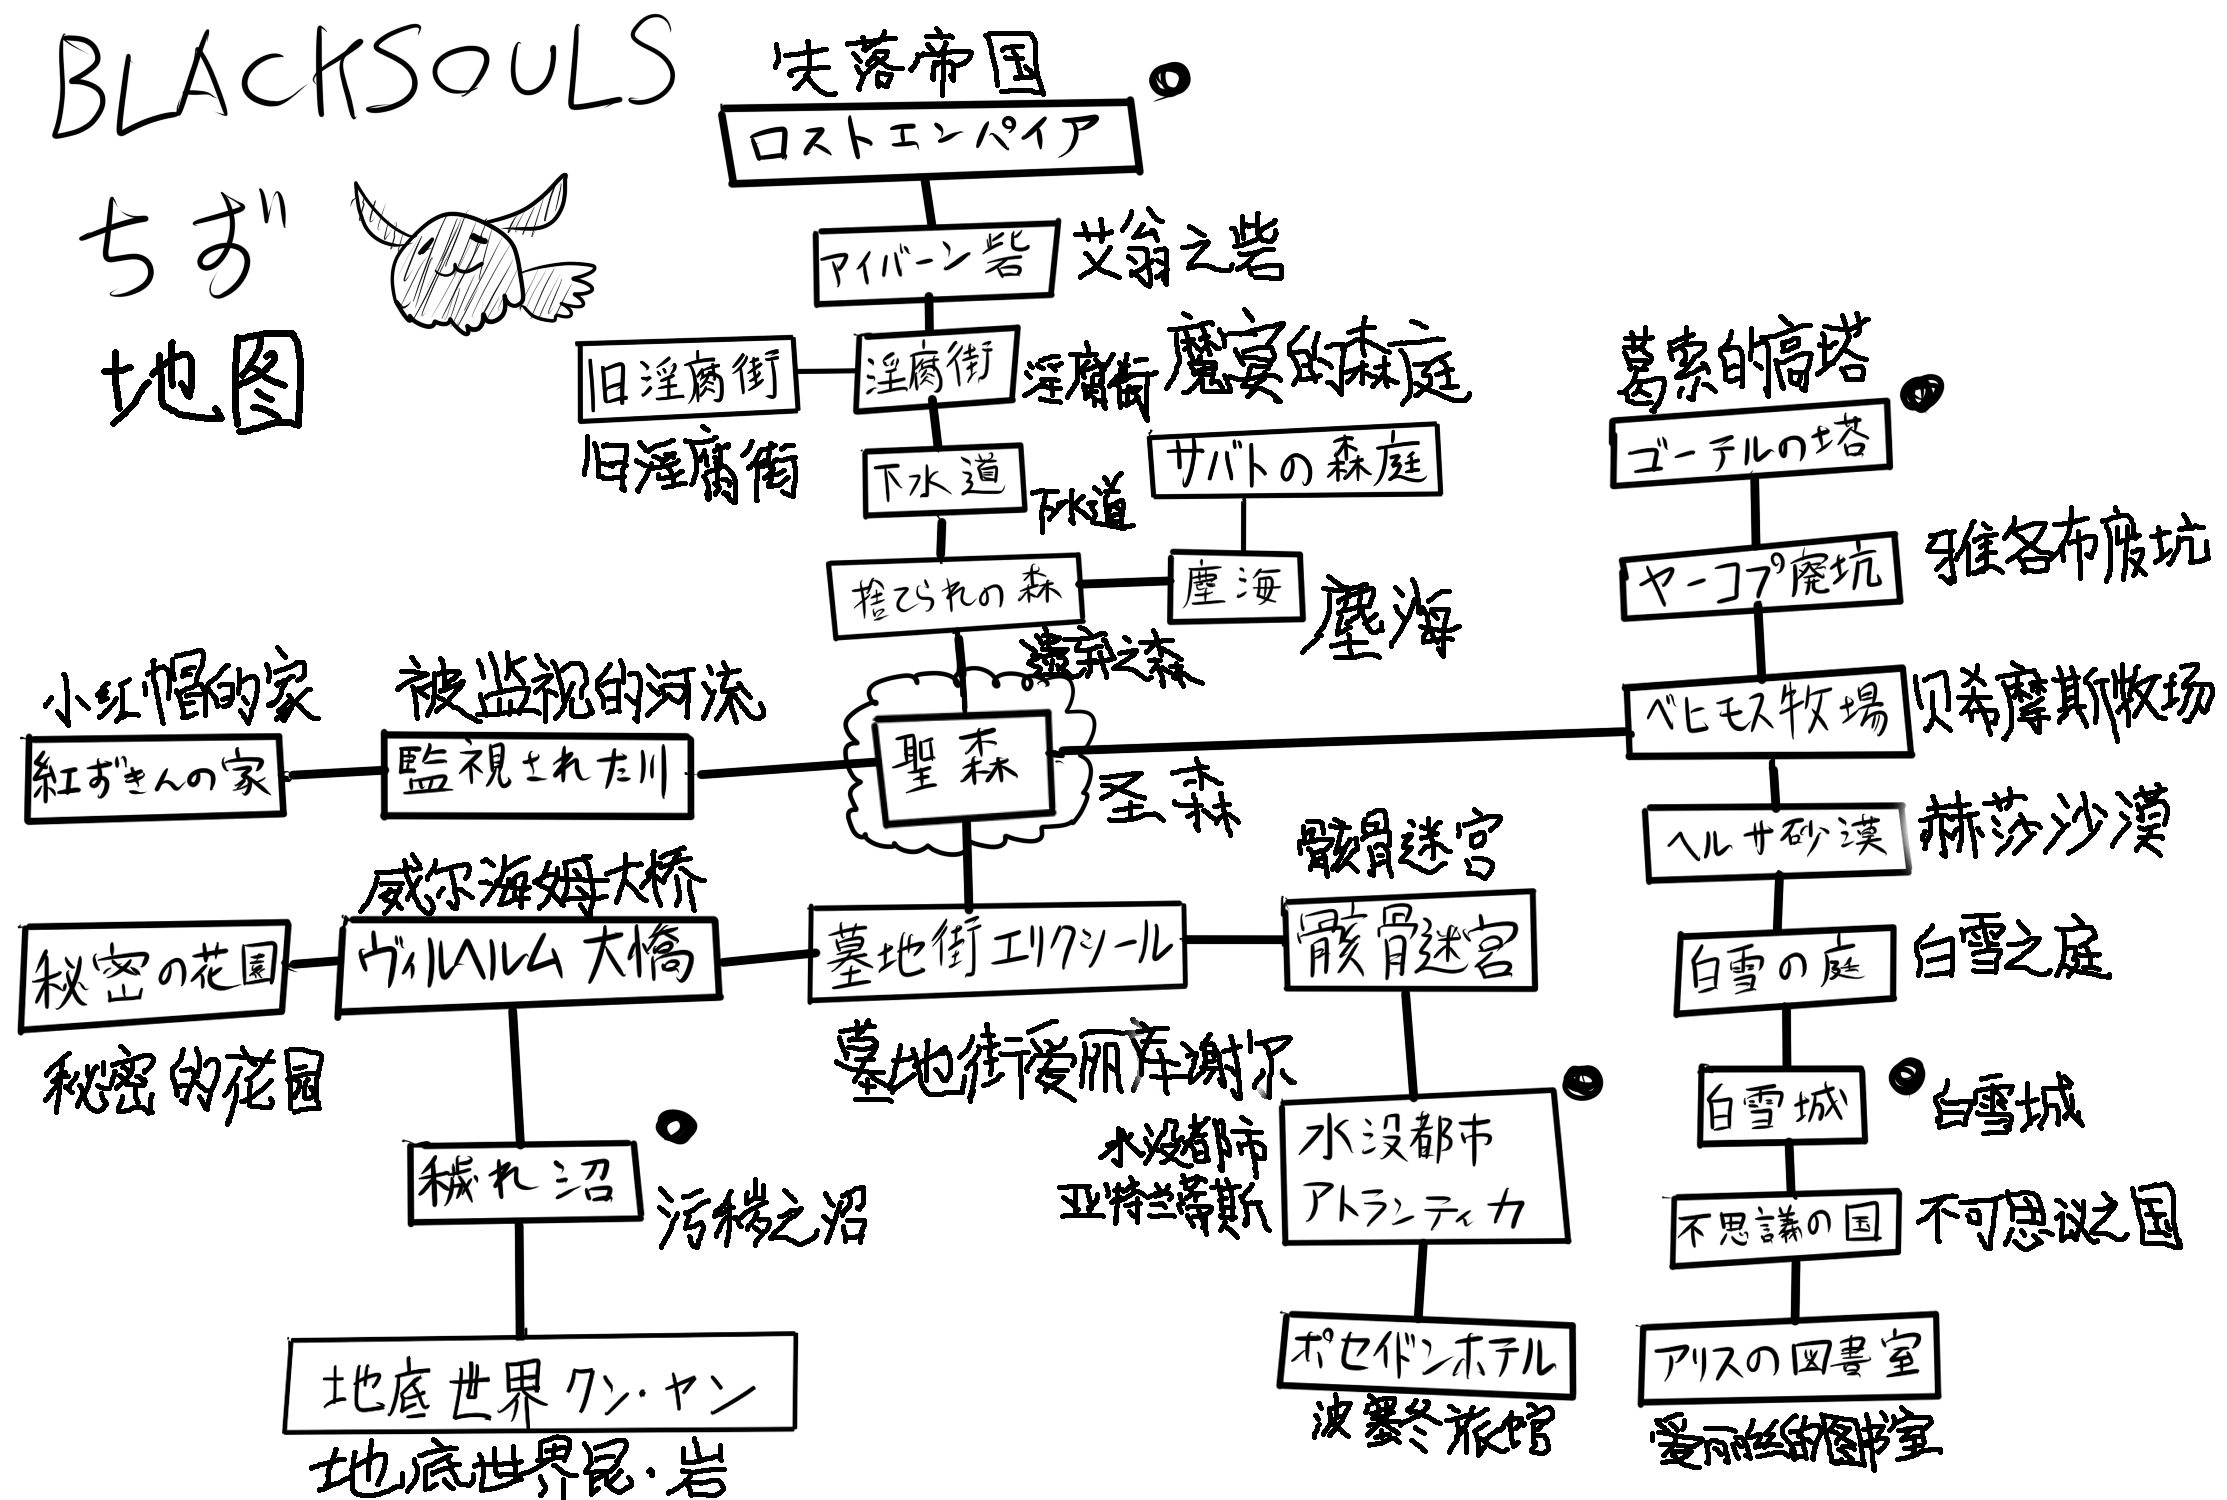 BLACKSOULS
ちず
地图
失落帝国
ロストエンパイア
アイバーン砦
艾翁之砦
旧淫腐街
旧淫腐街
淫腐街
淫腐街
魔宴的森庭
サバトの森庭
下水道
下水道
捨てられの森
遗弃之森
塵海
塵海
葛索的高塔
ゴーテルの塔
ヤーコプ廃坑
雅各布废坑
ベヒモス牧場
贝希摩斯牧场
小红帽的家
紅ずきんの家
被监视的河流
監視された川
聖森
圣森
ヘルサ砂漠
赫莎沙漠
威尔海姆大桥
ヴィルヘルム大橋
秘密の花園
秘密的花园
墓地街エリクシール
墓地街爱丽库谢尔
骸骨迷宫
骸骨迷宮
白雪の庭
白雪之庭
白雪城
白雪城
穢れ沼
污秽之沼
水没都市
亚特兰蒂斯
水没都市
アトランティカ
不思議の国
不可思议之国
地底世界クン・ヤン
地底世界昆·岩
ポセイドンホテル
波塞冬旅馆
アリスの図書室
爱丽丝的图书室